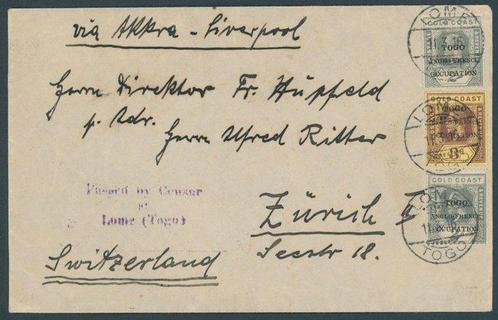 via Akkra - Liverpool
Herrn Direktor Fr. Hupfeld
p. Adr.
Herrn Alfred Ritter
Zürich II
Seestr 18.
Switzerland
Passed by Censor
at
Lome (Togo)
LOME
11.3.16
GOLD COAST
TOGO
ANGLO-FRENCH
OCCUPATION
LOME
GOLD COAST
TOGO
OCCUPATION
3d
GOLD COAST
LOME
TOGO
ANGLO-FRENCH
OCCUPATION
11
TOGO